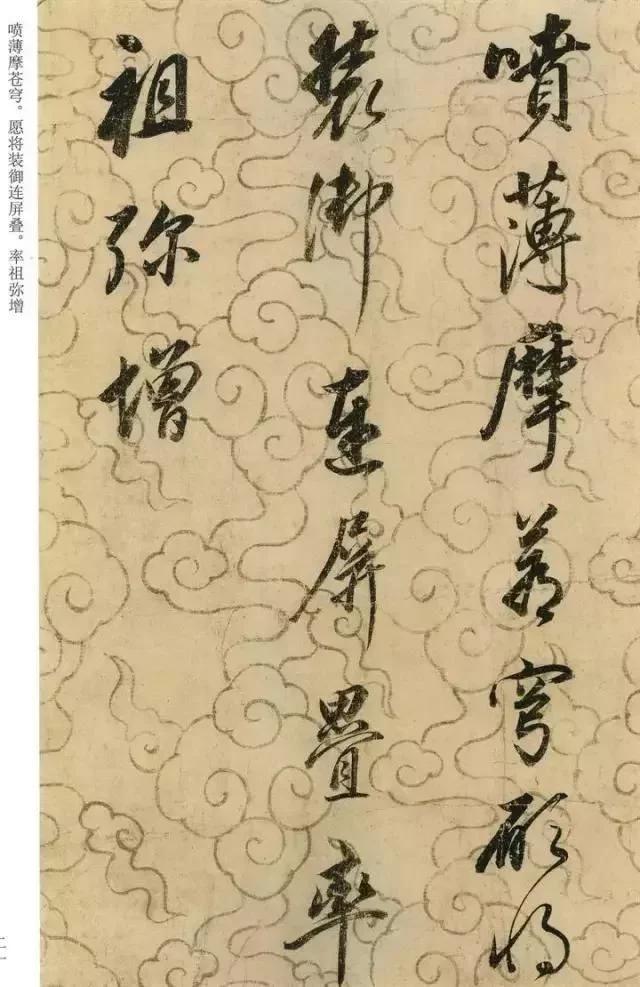 喷薄摩苍穹。愿将装御连屏叠。率祖弥增
噴薄摩蒼穹願將
裝御連屏疊率
祖弥增
二一